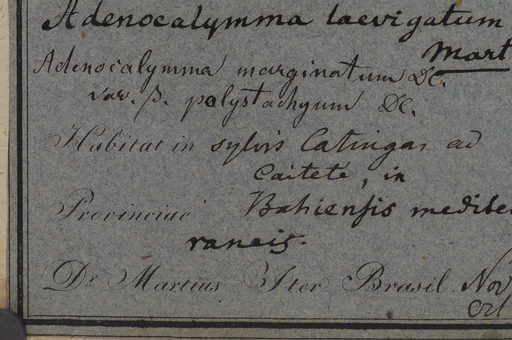 Adenocalymma laevigatum
Mart
Adenocalymma marginatum DC.
var. β. polystachyum DC.
Habitat in sylvis Catingas ad
Caiteté, in
Provinciae Bahiensis mediter
raneis.
Dr Martius Iter Brasil. Nov